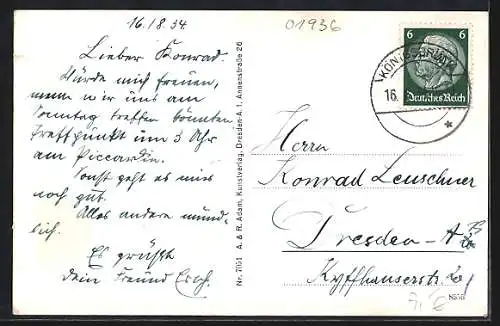 16./8. 34.
Lieber Konrad.
Würde mich freuen,
wenn wir uns am
Sonntag treffen könnten
Treffpunkt um 3 Uhr
am
Sonst geht es mir
noch gut.
Alles andere münd-
lich.
Es grüßt
dein Freund
01936
Nr. 7051 A. & R. Adam, Kunstverlag, Dresden-A. 1, Annenstraße 26
6 6
Deutsches Reich
KÖNIGSBRÜCK
16.
Herrn
Konrad Leuschner
Dresden-A
Kyffhäuserstr.